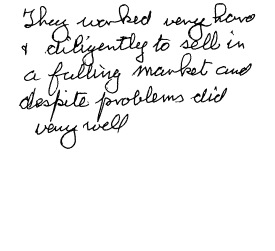 They worked very hard
& diligently to sell in
a falling market and
despite problems did
very well